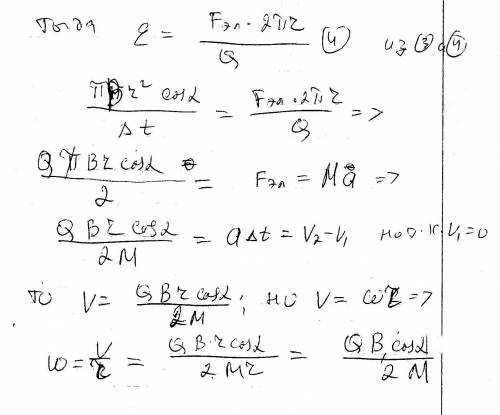 Тогда ε = Fэл · 2πr / Q (4) из (3) и (4)
πBr² cosα / Δt = Fэл · 2πr / Q =>
QπBr cosα / 2 = Fэл = Ma =>
QBr cosα / 2M = aΔt = V₂ - V₁ но т.к. V₁ = 0
то V = QBr cosα / 2M ; но V = ωr =>
ω = V / r = QB·r cosα / 2Mr = QB cosα / 2M